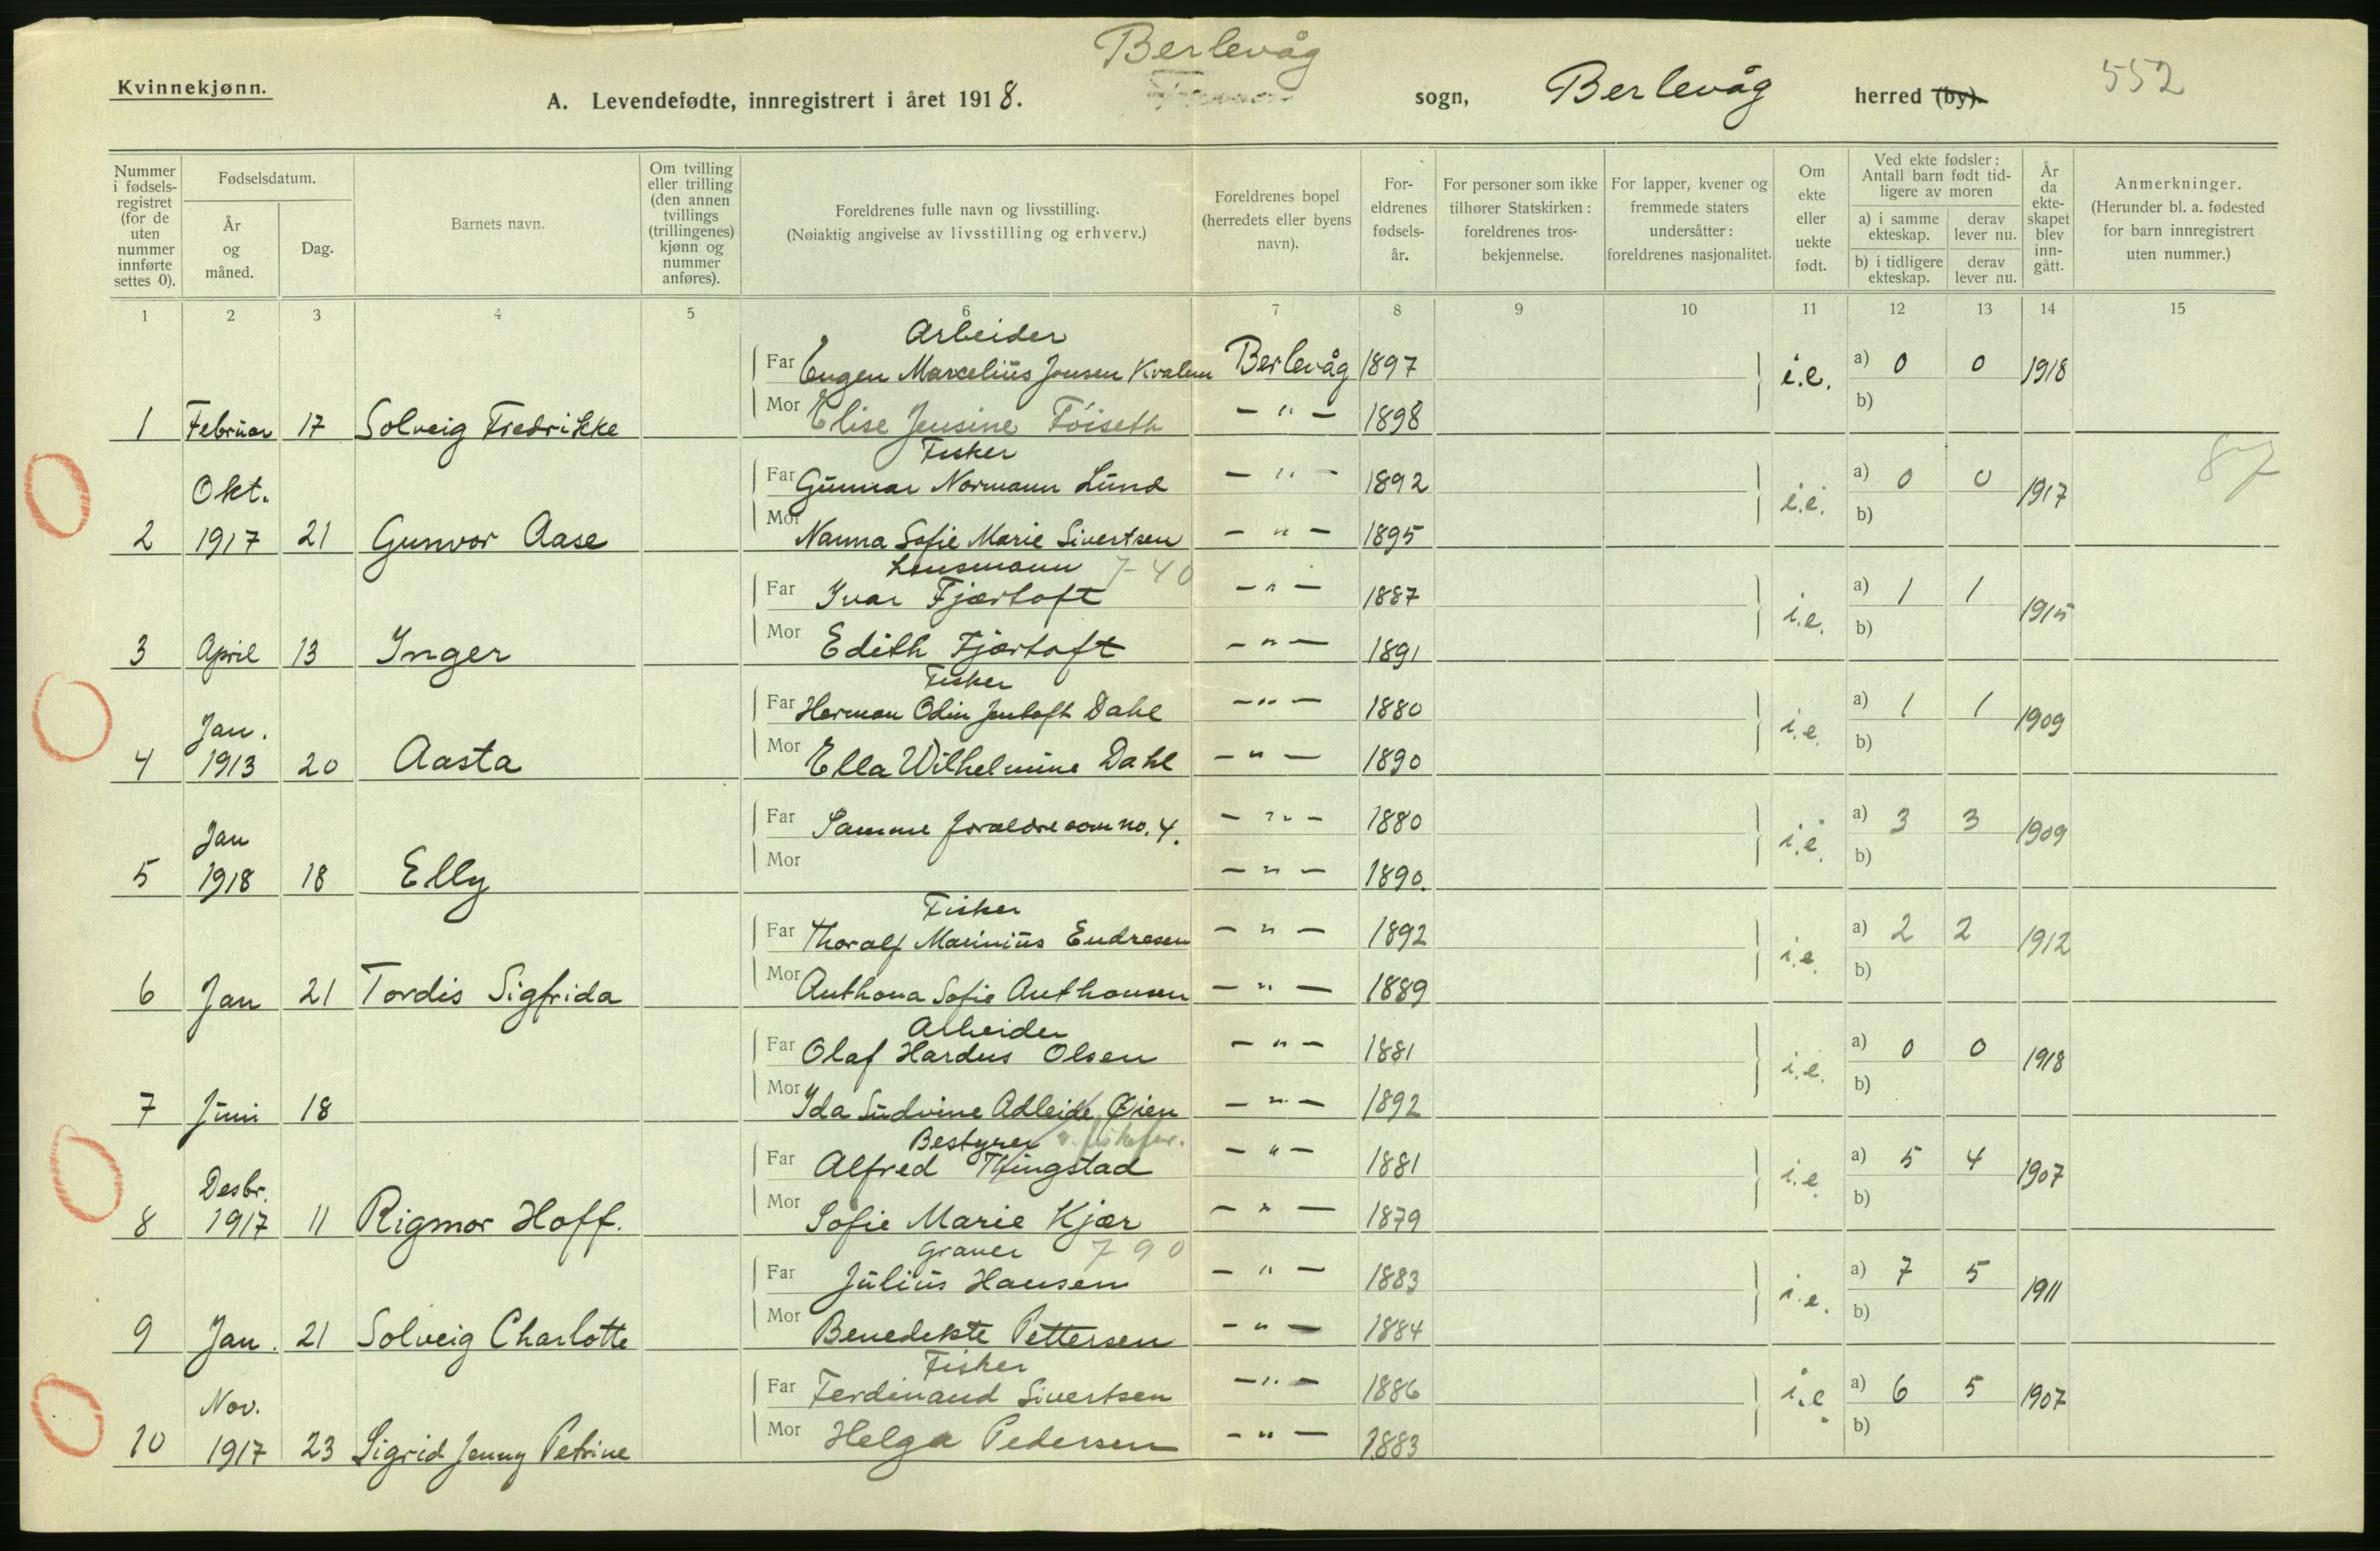 Berlevåg
Kvinnekjønn.
A. Levendefødte, innregistrert i året 1918. sogn, Berlevåg herred (by). 552
Nummer i fødsels-registret (for de uten nummer innførte settes 0).
Fødselsdatum.
År og måned.
Dag.
Barnets navn.
Om tvilling eller trilling (den annen tvillings (trillingenes) kjønn og nummer anføres).
Foreldrenes fulle navn og livsstilling.
(Nøiaktig angivelse av livsstilling og erhverv.)
Foreldrenes bopel (herredets eller byens navn).
For-eldrenes fødsels-år.
For personer som ikke tilhører Statskirken: foreldrenes tros-bekjennelse.
For lapper, kvener og fremmede staters undersåtter: foreldrenes nasjonalitet.
Om ekte eller uekte født.
Ved ekte fødsler: Antall barn født tid-ligere av moren
a) i samme ekteskap. derav lever nu.
b) i tidligere ekteskap. derav lever nu.
År da ekte-skapet blev inn-gått.
Anmerkninger.
(Herunder bl. a. fødested for barn innregistrert uten nummer.)
1 2 3 4 5 6 7 8 9 10 11 12 13 14 15
Arbeider
Far Eugen Marcelius Jensen Kvalen Berlevåg 1897 i.e. a) 0 0 1918
1 Februar 17 Solveig Fredrikke Mor Elise Jensine Föiseth — " — 1898 b)
Fisker
Okt. Far Gunnar Normann Lund — " — 1892 i.e. a) 0 0 1917 87
2 1917 21 Gunvor Aase Mor Nanna Sofie Marie Sivertsen — " — 1895 b)
Lensmann 7-40
Far Ivar Fjærtoft — " — 1887 i.e. a) 1 1 1915
3 April 13 Inger Mor Edith Fjærtoft — " — 1891 b)
Fisker
Jan. Far Herman Odin Jentoft Dahl — " — 1880 i.e. a) 1 1 1909
4 1913 20 Aasta Mor Ella Wilhelmine Dahl — " — 1890 b)
Jan Far Samme foreldre som no. 4. — " — 1880 i.e. a) 3 3 1909
5 1918 18 Elly Mor — " — 1890. b)
Fisker
Far Thoralf Marinius Endresen — " — 1892 i.e. a) 2 2 1912
6 Jan 21 Tordis Sigfrida Mor Anthona Sofie Anthonsen — " — 1889 b)
Arbeider
Far Olaf Hardus Olsen — " — 1881 i.e. a) 0 0 1918
7 Juni 18 Mor Ida Ludvine Adleide Øien — " — 1892 b)
Bestyrer
Desbr. Far Alfred Thingstad — " — 1881 i.e. a) 5 4 1907
8 1917 11 Rigmor Hoff. Mor Sofie Marie Kjær — " — 1879 b)
Graver 790
Far Julius Hansen — " — 1883 i.e. a) 7 5 1911
9 Jan. 21 Solveig Charlotte Mor Benedikte Pettersen — " — 1884 b)
Fisker
Nov. Far Ferdinand Sivertsen — " — 1886 i.e a) 6 5 1907
10 1917 23 Sigrid Jenny Petrine Mor Helga Pedersen — " — 1883 b)